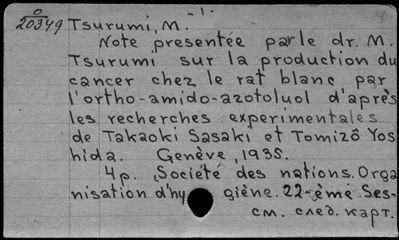 - 1 -
O
20349 Tsurumi, M.
Note présentée par le dr. M.
Tsurumi sur la production du
cancer chez le rat blanc par
l'ortho-amido-azotoluol d'après
les recherches expérimentales
de Takaoki Sasaki et Tomizô Yos
hida. Genève, 1935.
4p. Société des nations. Orga
nisation d'hygiène. 22-ème Ses-
см. след. карт.